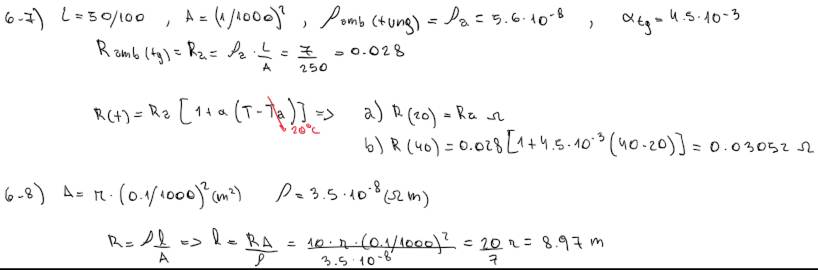 6-7) L = 50/100 , A = (1/1000)² , ρamb (tung) = ρa = 5.6·10⁻⁸ , αtg = 4.5·10⁻³
Ramb (tg) = Ra = ρa · L/A = 7/250 = 0.028
R(t) = Ra [1 + α (T - Ta)] => a) R(20) = Ra Ω
20°C
b) R(40) = 0.028 [1 + 4.5·10⁻³ (40-20)] = 0.03052 Ω
6-8) A = π · (0.1/1000)² (m²) ρ = 3.5·10⁻⁸ (Ω m)
R = ρ l/A => l = RA/ρ = 10 · π · (0.1/1000)² / 3.5·10⁻⁸ = 20/7 π = 8.97 m